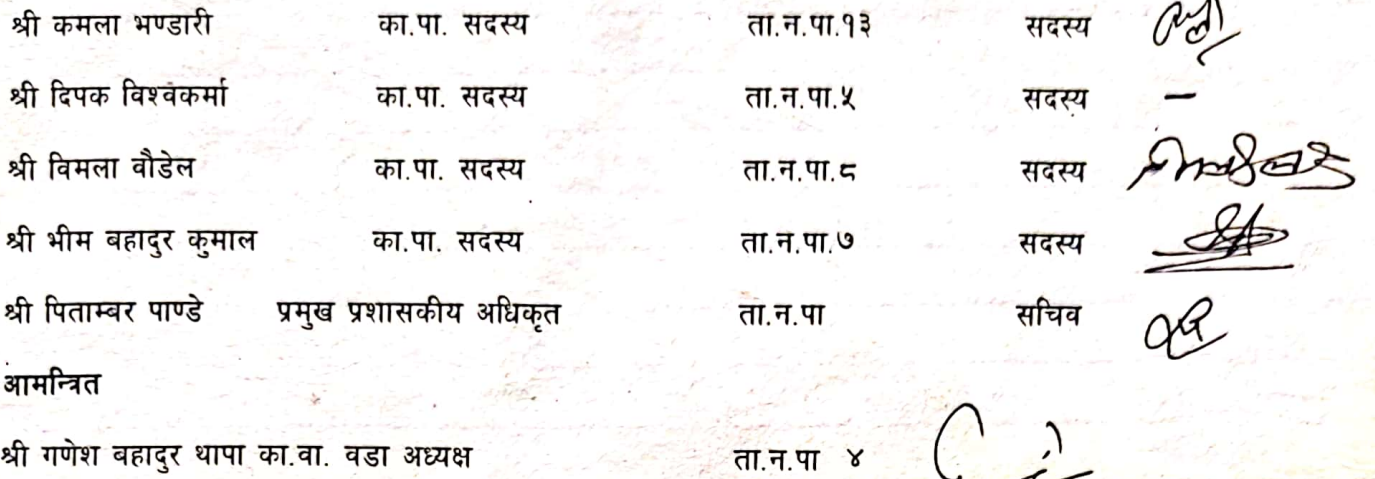 श्री कमला भण्डारी का.पा. सदस्य ता.न.पा.१३ सदस्य
श्री दिपक विश्वकर्मा का.पा. सदस्य ता.न.पा.५ सदस्य –
श्री विमला वौडेल का.पा. सदस्य ता.न.पा.८ सदस्य
श्री भीम बहादुर कुमाल का.पा. सदस्य ता.न.पा.७ सदस्य
श्री पिताम्बर पाण्डे प्रमुख प्रशासकीय अधिकृत ता.न.पा सचिव
आमन्त्रित
श्री गणेश बहादुर थापा का.वा. वडा अध्यक्ष ता.न.पा ४